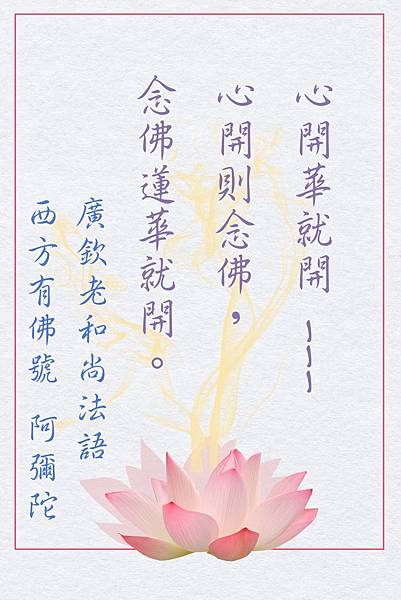 心開華就開 ~~~
心開則念佛，
念佛蓮華就開。
廣欽老和尚法語
西方有佛號 阿彌陀